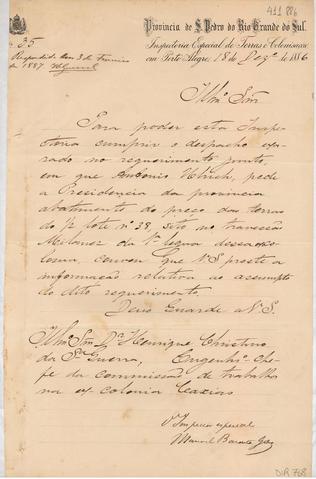 411 886
Provincia de S. Pedro do Rio Grande do Sul.
Nº 35
Inspetoria Especial de Terras e Colonisação
Respondido em 3 de Fevereiro
em Porto Alegre, 18 de Dezº de 1886
de 1887
Illmº Snr
Para poder esta Inspe-
ctoria cumprir o despacho exa-
rado no requerimento junto,
em que Antonio pede
a Presidencia da provincia
abatimento do preço das terras
do ½ lote nº 38, sito no travessão
Milanez da Vª legua dessa ex-co-
lonia, convem que V.S. preste a
informação relativa ao assumpto
do dito requerimento.
Deus Guarde a V.S.
Illmº Snr Dr Henrique Christino
da Sª Guerra, Engenhº Che-
fe da commissão de trabalhos
na ex-colonia Caxias.
O Inspector especial
Manoel
DIR 768